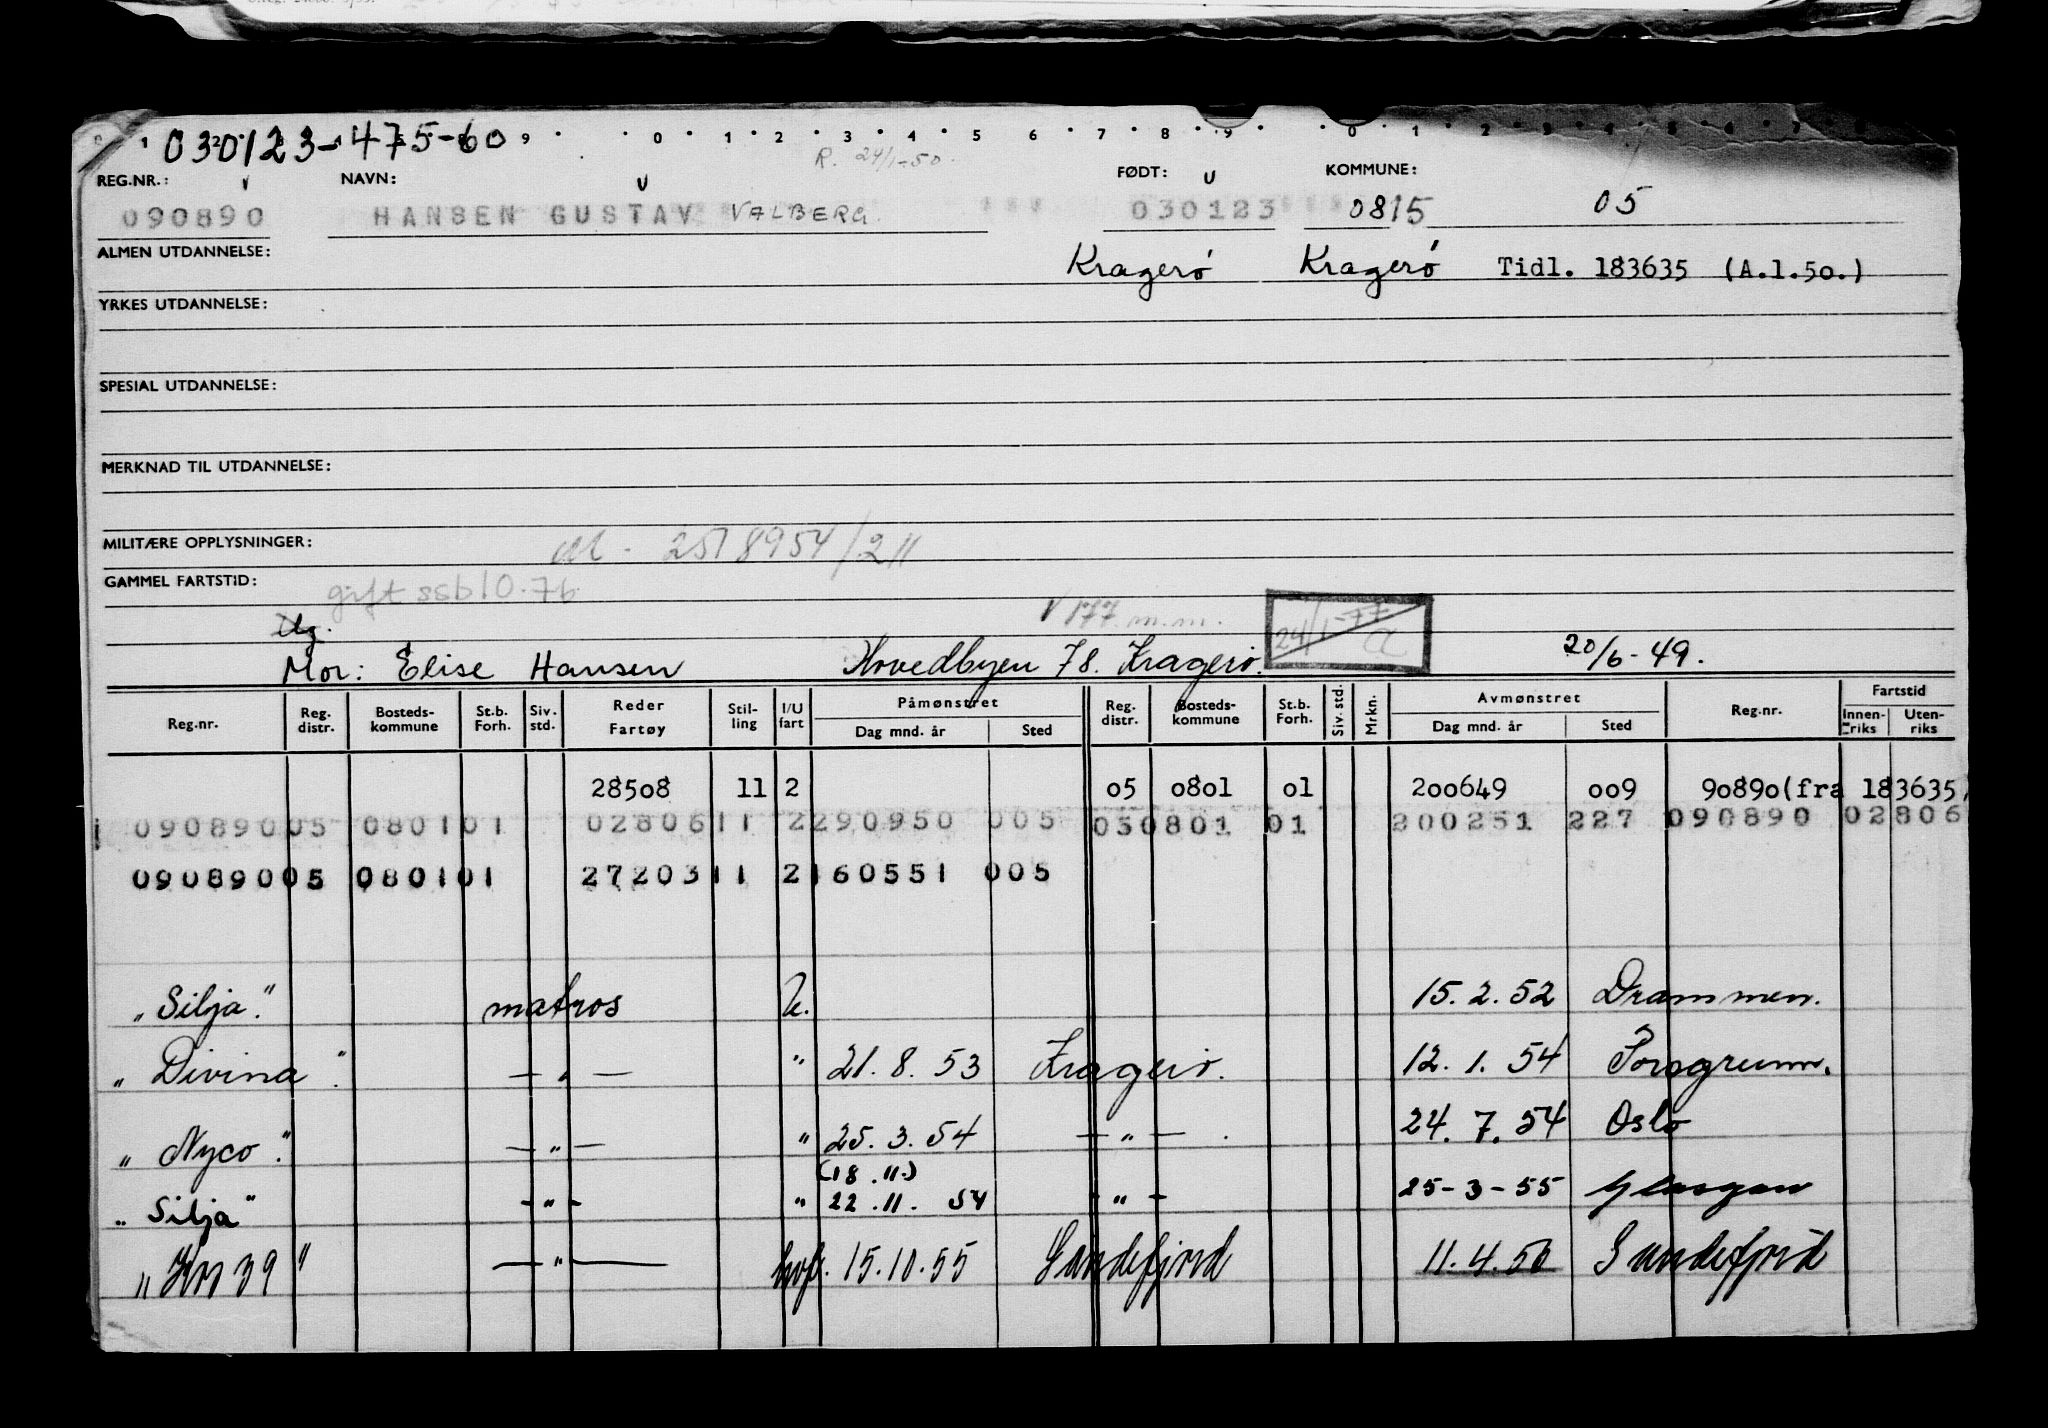 030123-475-60
R. 24/1-50.
REG.NR.: NAVN: FØDT: KOMMUNE:
090890 HANSEN GUSTAV VALBERG 030123 0815 05
ALMEN UTDANNELSE: Kragerø Kragerø Tidl. 183635 (A.l.5o.)
YRKES UTDANNELSE:
SPESIAL UTDANNELSE:
MERKNAD TIL UTDANNELSE:
MILITÆRE OPPLYSNINGER: 2518954/211
GAMMEL FARTSTID: gift ssb 10.76
V 177 m.m. 24/1-77 a
Mor: Elise Hansen Hovedbyen 78. Kragerø. 20/6-49.
Reg.nr. Reg. distr. Bosteds- kommune St.b. Forh. Siv. std. Reder Fartøy Stil- ling I/U fart Påmønstret Dag mnd. år Sted Reg. distr. Bosteds- kommune St.b. Forh. Siv. std. Mrkn. Avmønstret Dag mnd. år Sted Reg.nr. Fartstid Innen- riks Uten- riks
28508 11 2 05 0801 01 200649 009 90890(fra 183635,
090890 05 0801 01 028061 1 2 290950 005 05 0801 01 200251 227 090890 02806
090890 05 0801 01 272031 1 2 160551 005
"Silja". matros U. 15.2.52 Drammen.
"Divina". — " — " 21.8.53 Kragerø. 12.1.54 Porsgrunn.
"Nyco". — " — " 25.3.54 — " — . 24.7.54 Oslo
(18.11.)
"Silja" - " - " 22.11.54 - " - 25-3-55 Glasgow
"Kos 39" — " — hvf. 15.10.55 Sandefjord 11.4.56 Sandefjord